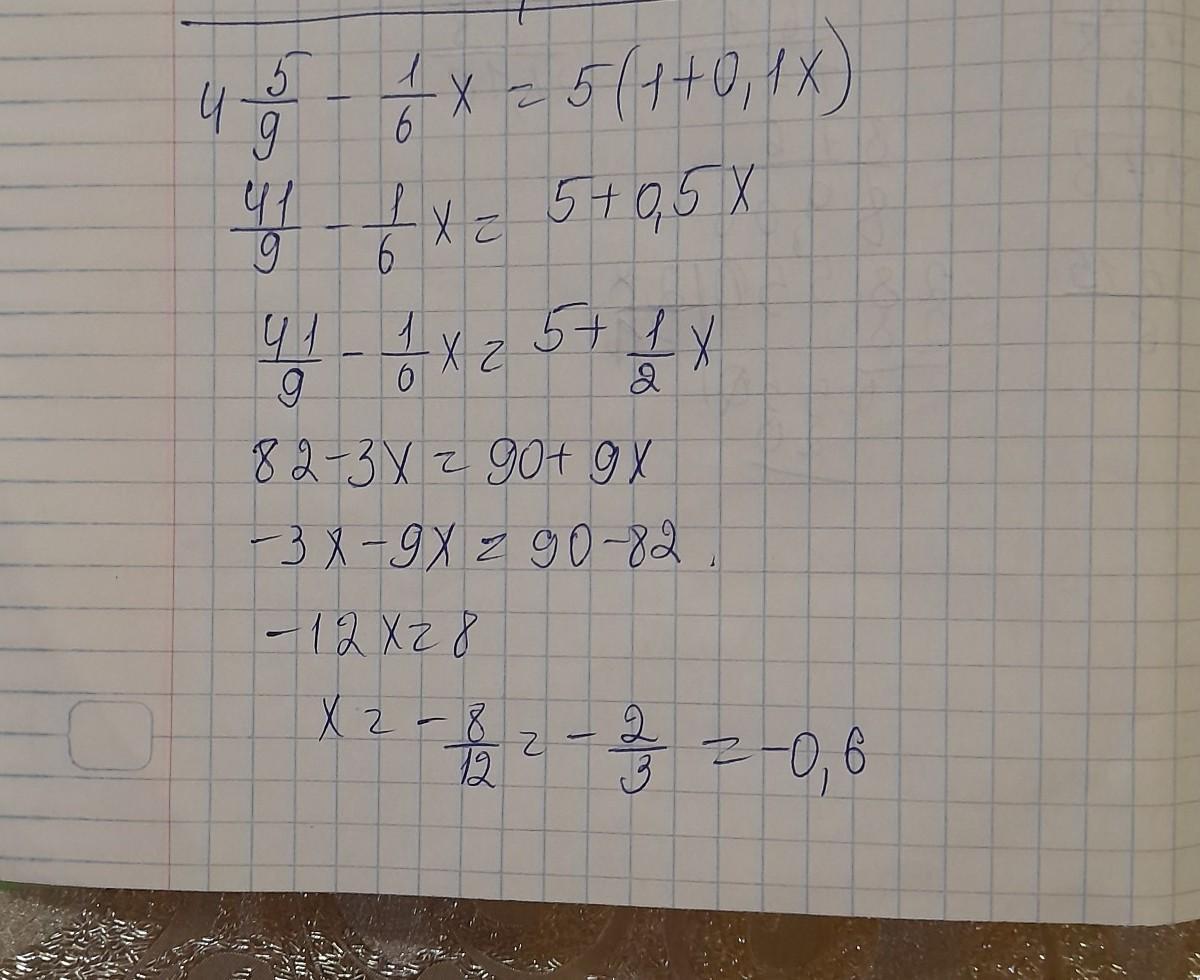 4 5/9 - 1/6 x = 5(1+0,1x)
41/9 - 1/6 x = 5+0,5x
41/9 - 1/6 x = 5+ 1/2 x
82-3x = 90+9x
-3x-9x = 90-82.
-12x=8
x = - 8/12 = - 2/3 = -0,6